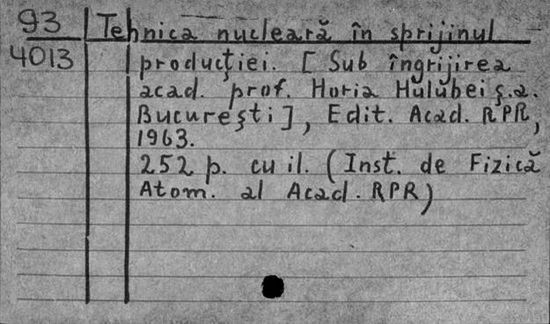 93 Tehnica nucleară în sprijinul
4013 producţiei. [Sub îngrijirea
acad. prof. Horia Hulubei ş.a.
Bucureşti], Edit. Acad. RPR,
1963.
252 p. cu il. (Inst. de Fizică
Atom. al Acad. RPR)